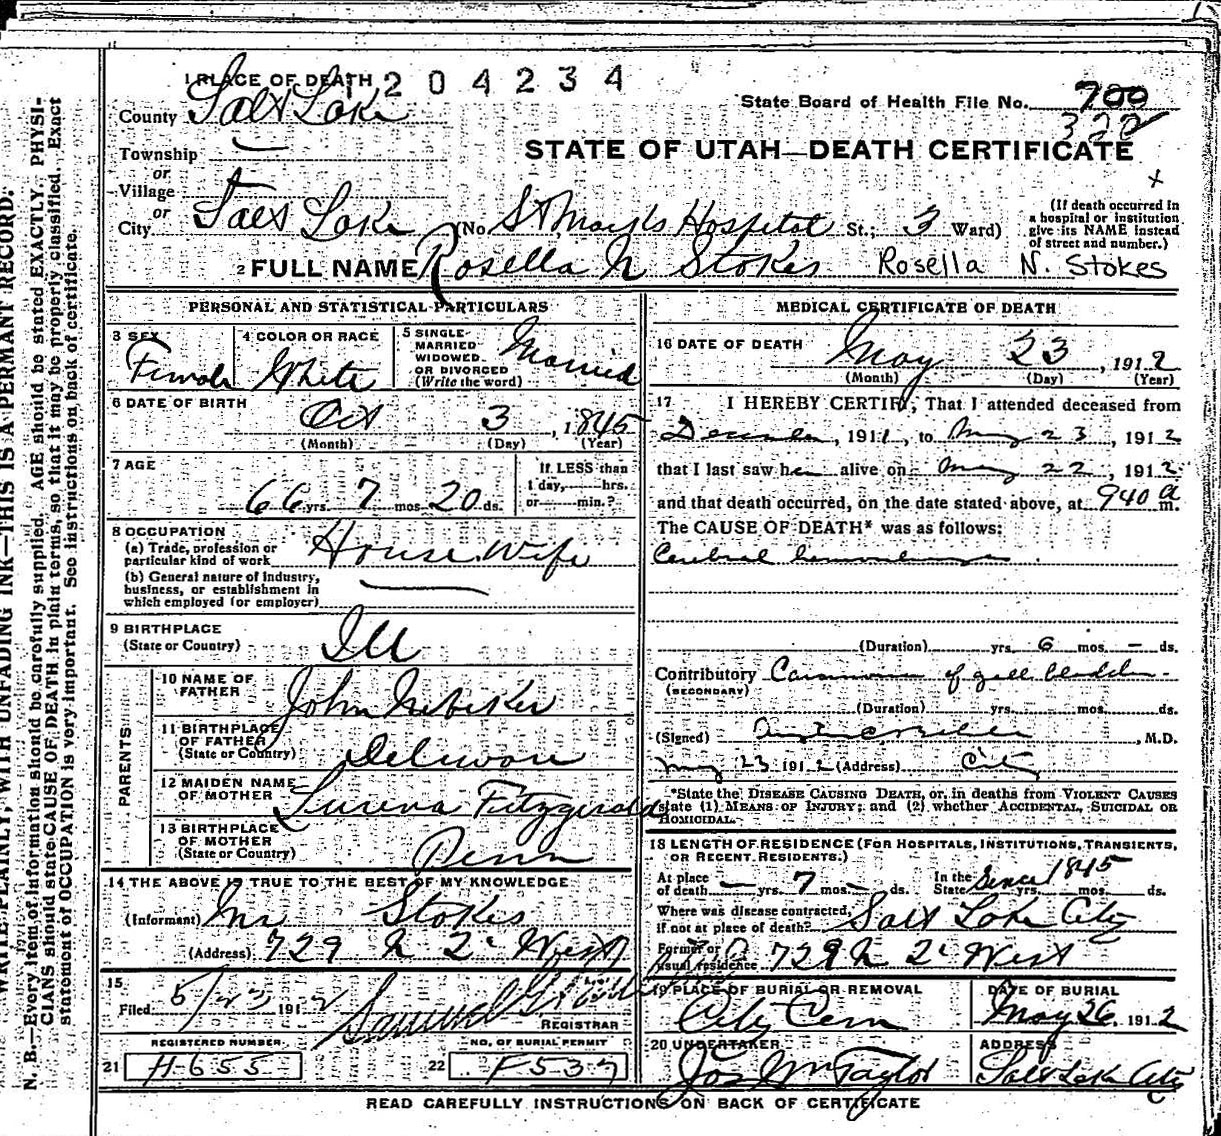 1 PLACE OF DEATH 1204234
State Board of Health File No. 700
322
County Salt Lake
STATE OF UTAH—DEATH CERTIFICATE
Township
or
Village
or
City Salt Lake (No. St Mark's Hospital St.; 3 Ward)
(If death occurred in
a hospital or institution
give its NAME instead
of street and number.)
2 FULL NAME Rosella N Stokes Rosella N. Stokes
PERSONAL AND STATISTICAL PARTICULARS
3 SEX Female
4 COLOR OR RACE White
5 SINGLE
MARRIED
WIDOWED
OR DIVORCED
(Write the word) Married
6 DATE OF BIRTH Oct 3, 1845
(Month) (Day) (Year)
7 AGE 66 yrs. 7 mos. 20 ds.
If LESS than
1 day, hrs.
or min.?
8 OCCUPATION
(a) Trade, profession or
particular kind of work House Wife
(b) General nature of Industry,
business, or establishment in
which employed (or employer)
9 BIRTHPLACE
(State or Country) Ill
PARENTS
10 NAME OF
FATHER John Nebeker
11 BIRTHPLACE
OF FATHER
(State or Country) Delewore
12 MAIDEN NAME
OF MOTHER Lurena Fitzgerald
13 BIRTHPLACE
OF MOTHER
(State or Country) Penn
14 THE ABOVE IS TRUE TO THE BEST OF MY KNOWLEDGE
(Informant) Mr Stokes
(Address) 729 N 2d West
15
Filed 5/23 1912 Samuel G.
REGISTRAR
REGISTERED NUMBER
21 H-655
NO. OF BURIAL PERMIT
22 F537
MEDICAL CERTIFICATE OF DEATH
16 DATE OF DEATH May 23, 1912
(Month) (Day) (Year)
17 I HEREBY CERTIFY, That I attended deceased from
December, 1911, to May 23, 1912
that I last saw her alive on May 22, 1912
and that death occurred, on the date stated above, at 940 a m.
The CAUSE OF DEATH* was as follows:
Cerebral hemorrhage
(Duration) yrs. 6 mos. — ds.
Contributory Carcinoma of gall bladder
(SECONDARY)
(Duration) yrs. mos. ds.
(Signed) , M.D.
May 23 1912 (Address) City
*State the DISEASE CAUSING DEATH, or, in deaths from VIOLENT CAUSES
state (1) MEANS OF INJURY; and (2) whether ACCIDENTAL, SUICIDAL OR
HOMICIDAL.
18 LENGTH OF RESIDENCE (FOR HOSPITALS, INSTITUTIONS, TRANSIENTS,
OR RECENT RESIDENTS.)
At place
of death — yrs. 7 mos. — ds. In the
State Since 1845 yrs. mos. ds.
Where was disease contracted,
if not at place of death? Salt Lake City
Former or
usual residence 729 N 2d West
19 PLACE OF BURIAL OR REMOVAL
City Cem
DATE OF BURIAL
May 26, 1912
20 UNDERTAKER
Jos Wm Taylor
ADDRESS
Salt Lake City
READ CAREFULLY INSTRUCTIONS ON BACK OF CERTIFICATE
WRITE PLAINLY, WITH UNFADING INK—THIS IS A PERMANT RECORD.
N. B.—Every item of information should be carefully supplied. AGE should be stated EXACTLY. PHYSI-
CIANS should state CAUSE OF DEATH in plain terms, so that it may be properly classified. Exact
statement of OCCUPATION is very important. See instructions on back of certificate.